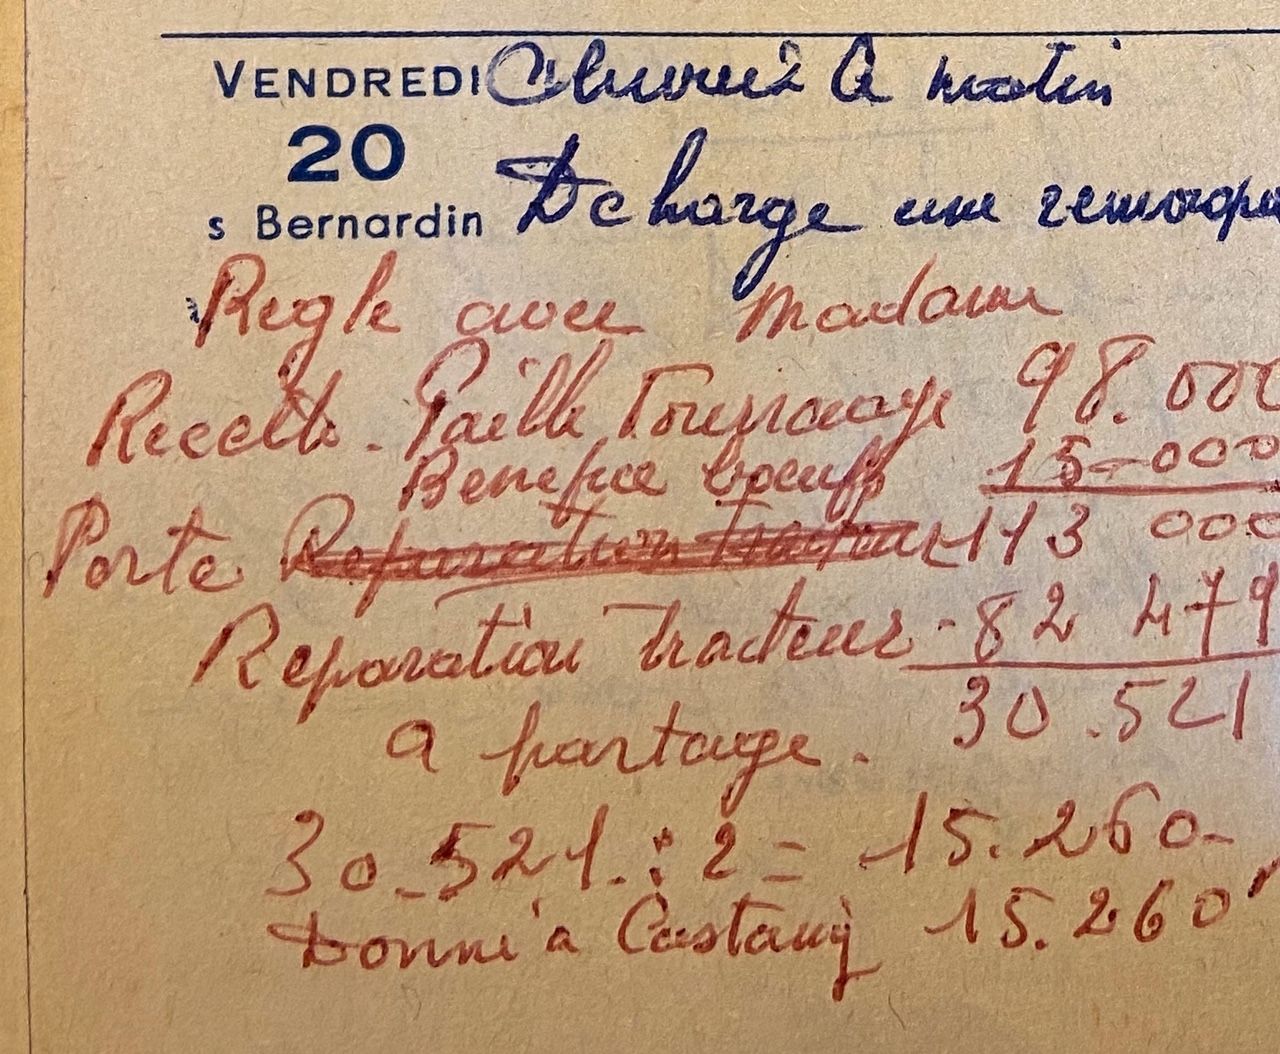 VENDREDI Charrié Q matin
20
s Bernardin Decharge une remorque
Regle avec Madame
Recette. Paille Fourrage 98.000
Benefice boeufs 15-000
Porte Reparation Tracteur 113 000
Reparation Tracteur - 82 479
a partage. 30.521
30.521. : 2 = 15.260-
Donné a Castany 15.260